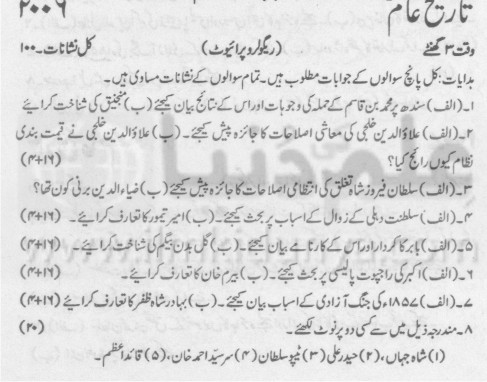 تاریخ عام ۲۰۰۶
وقت ۳ گھنٹے (ریگولر و پرائیوٹ) کل نشانات۔۱۰۰
ہدایات: کل پانچ سوالوں کے جوابات مطلوب ہیں۔ تمام سوالوں کے نشانات مساوی ہیں۔
۱۔ (الف) سندھ پر محمد بن قاسم کے حملہ کی وجوہات اور اس کے نتائج بیان کیجئے (ب) منجنیق کی شناخت کرائیے
۲۔ (الف) علاؤ الدین خلجی کی معاشی اصلاحات کا جائزہ پیش کیجئے۔ (ب) علاؤ الدین خلجی نے قیمت بندی
نظام کیوں رائج کیا؟ (۴+۱۶)
۳۔ (الف) سلطان فیروز شاہ تغلق کی انتظامی اصلاحات کا جائزہ پیش کیجئے (ب) ضیاء الدین برنی کون تھا؟
۴۔ (الف) سلطنت دہلی کے زوال کے اسباب پر بحث کیجئے۔ (ب) امیر تیمور کا تعارف کرائیے۔ (۴+۱۶)
۵۔ (الف) بابر کا کردار اور اس کے کارنامے بیان کیجئے۔ (ب) گل بدن بیگم کی شناخت کرائیے۔ (۴+۱۶)
۶۔ (الف) اکبر کی راجپوت پالیسی پر بحث کیجئے۔ (ب) بیرم خان کا تعارف کرائیے۔ (۴+۱۶)
۷۔ (الف) ۱۸۵۷ء کی جنگ آزادی کے اسباب بیان کیجئے۔ (ب) بہادر شاہ ظفر کا تعارف کرائیے (۴+۱۶)
۸۔ مندرجہ ذیل میں سے کسی دو پر نوٹ لکھئے۔ (۲۰)
(۱) شاہ جہاں، (۲) حیدر علی (۳) ٹیپو سلطان (۴) سر سید احمد خان، (۵) قائد اعظم۔